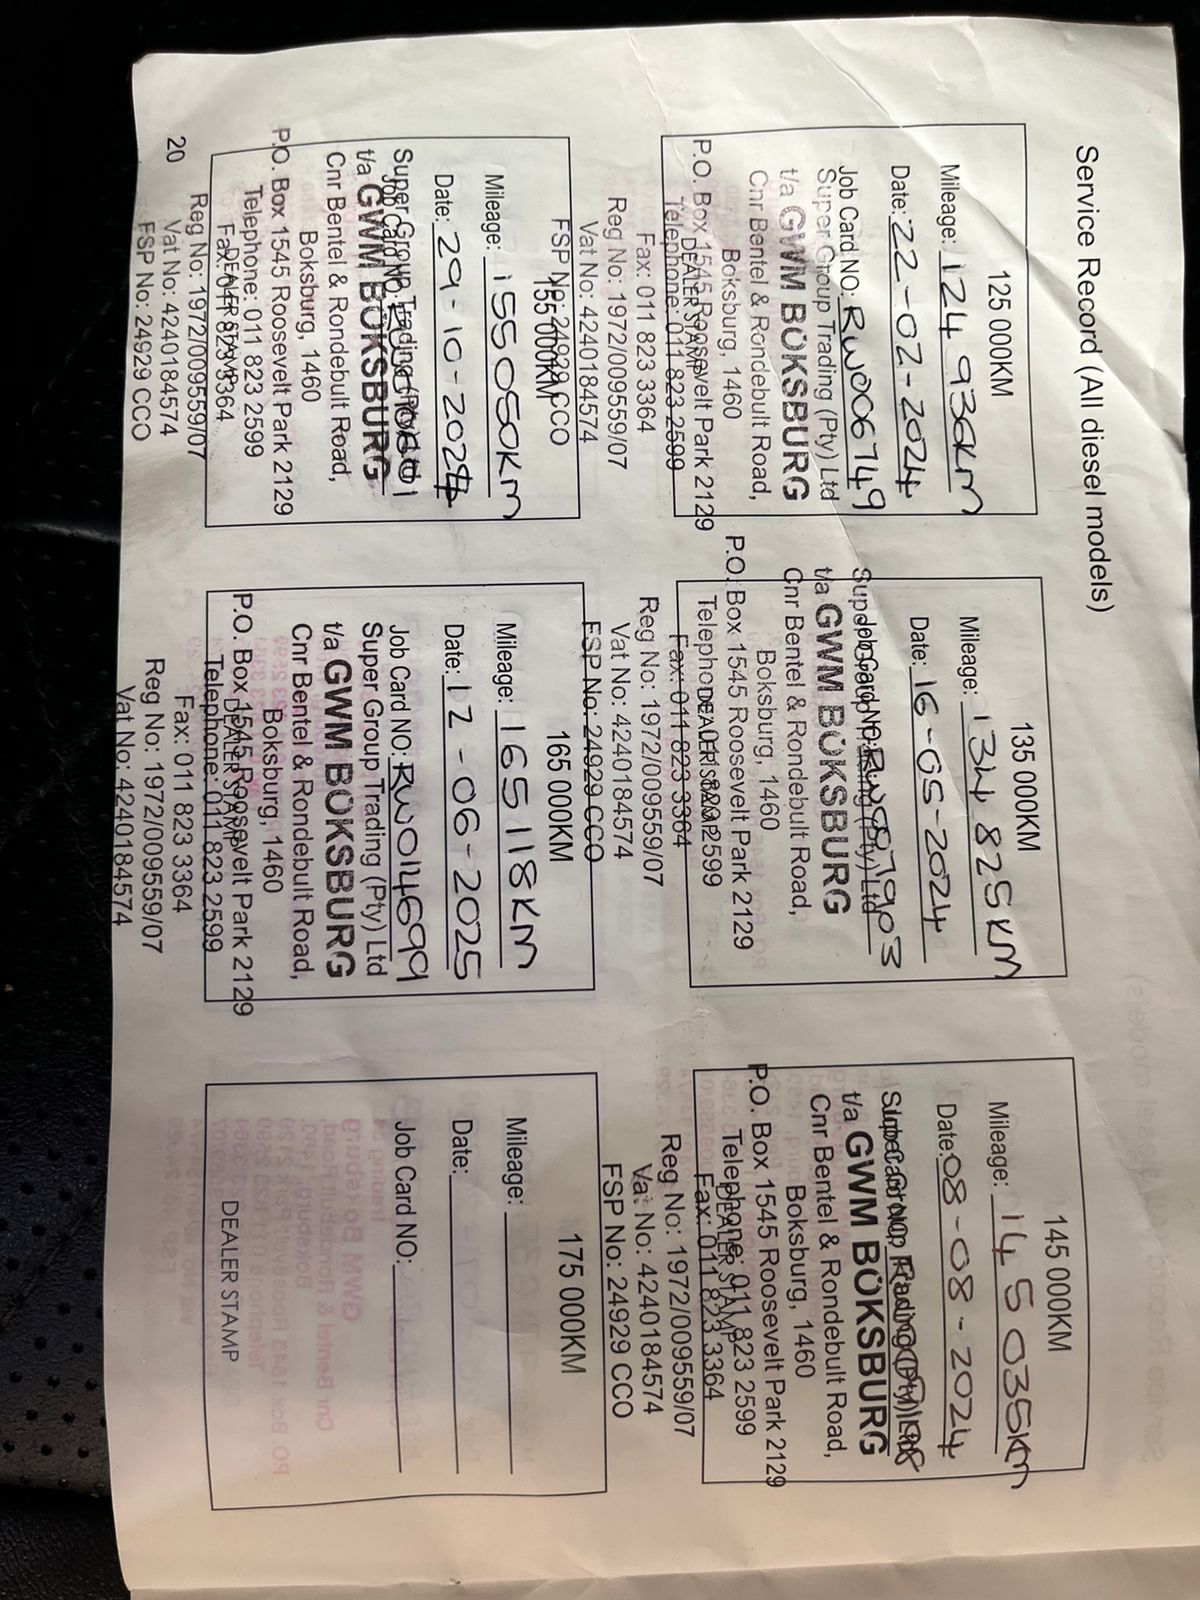 Service Record (All diesel models)
125 000KM
Mileage: 124 936km
Date: 22-02-2024
Job Card NO: RW006749
Super Group Trading (Pty) Ltd
t/a GWM BOKSBURG
Cnr Bentel & Rondebult Road,
Boksburg, 1460
P.O. Box 1545 Roosevelt Park 2129
DEALER STAMP
Telephone: 011 823 2599
Fax: 011 823 3364
Reg No: 1972/009559/07
Vat No: 4240184574
FSP No: 24929 CCO
135 000KM
Mileage: 134 825KM
Date: 16-05-2024
Job Card NO:
t/a GWM BOKSBURG
Cnr Bentel & Rondebult Road,
Boksburg, 1460
P.O. Box 1545 Roosevelt Park 2129
DEALER STAMP
Telephone: 011 823 2599
Fax: 011 823 3364
Reg No: 1972/009559/07
Vat No: 4240184574
FSP No: 24929 CCO
145 000KM
Mileage: 145 035km
Date: 08-08-2024
t/a GWM BOKSBURG
Cnr Bentel & Rondebult Road,
Boksburg, 1460
P.O. Box 1545 Roosevelt Park 2129
DEALER STAMP
Telephone: 011 823 2599
Fax: 011 823 3364
Reg No: 1972/009559/07
Vat No: 4240184574
FSP No: 24929 CCO
155 000KM
Mileage: 155050KM
Date: 29-10-2024
Job Card NO:
Super Group Trading
t/a GWM BOKSBURG
Cnr Bentel & Rondebult Road,
Boksburg, 1460
P.O. Box 1545 Roosevelt Park 2129
Telephone: 011 823 2599
DEALER STAMP
Fax: 011 823 3364
Reg No: 1972/009559/07
Vat No: 4240184574
FSP No: 24929 CCO
165 000KM
Mileage: 165118KM
Date: 12-06-2025
Job Card NO: RW014699
Super Group Trading (Pty) Ltd
t/a GWM BOKSBURG
Cnr Bentel & Rondebult Road,
Boksburg, 1460
P.O. Box 1545 Roosevelt Park 2129
DEALER STAMP
Telephone: 011 823 2599
Fax: 011 823 3364
Reg No: 1972/009559/07
Vat No: 4240184574
175 000KM
Mileage:
Date:
Job Card NO:
DEALER STAMP
20